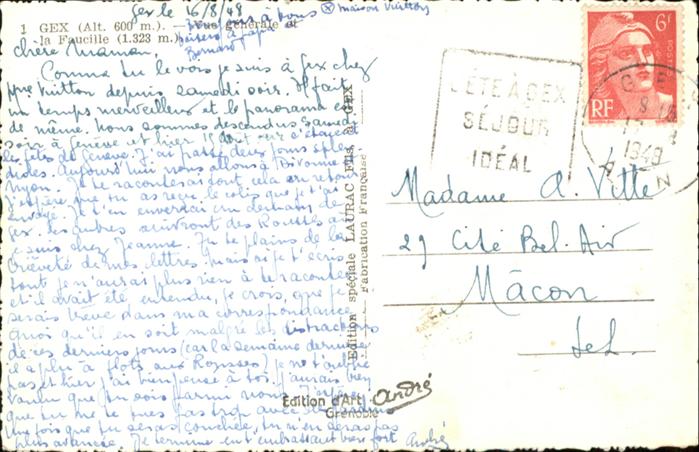 Gex le 16/8/48
⊗ maison Vuitton
1 GEX (Alt. 600 m.) — Vue générale et
la Faucille (1.323 m.)
chère Maman,
Comme tu le vois je suis à Gex chez
Mme Vuitton depuis samedi soir. Il fait
un temps merveilleux et le panorama est
de même. Nous sommes descendus samedi
soir à Genève et hier
les fêtes de Genève. J'ai passé deux jours splen
dides. Aujourd'hui nous allons à Divonne
Nyon. Je te raconterai tout cela en rentrant
J'espère que tu as reçu le colis que je t'ai
envoyé. Je t'en enverrai un de
Gex. Les autres suivront des Rousses
je suis chez Jeanne. Tu te plains de la
brièveté de mes lettres mais si je t'écris
tout je n'aurai plus rien à te raconter
et il avait été entendu, je crois, que je
serais brève dans ma correspondance
Quoi qu'il en soit malgré les distractions
de ces derniers jours (car la semaine dernière
il a plu à flots aux Rousses) je ne t'oublie
pas et hier j'ai bien pensé à toi. J'aurais bien
voulu que tu sois parmi nous. J'espère
que tu ne te
une fois que tu seras couchée, tu n'en seras pas
plus avancée. Je termine en t'embrassant bien fort
Andrée
Edition spéciale LAURAC Fils, à GEX
Fabrication Française
Edition d'Art André
Grenoble
L'ÉTÉ À GEX
SÉJOUR
IDÉAL
6f
RF
GEX
1948
AIN
Madame A. Vitte
29 Cité Bel-Air
Mâcon
S et L.